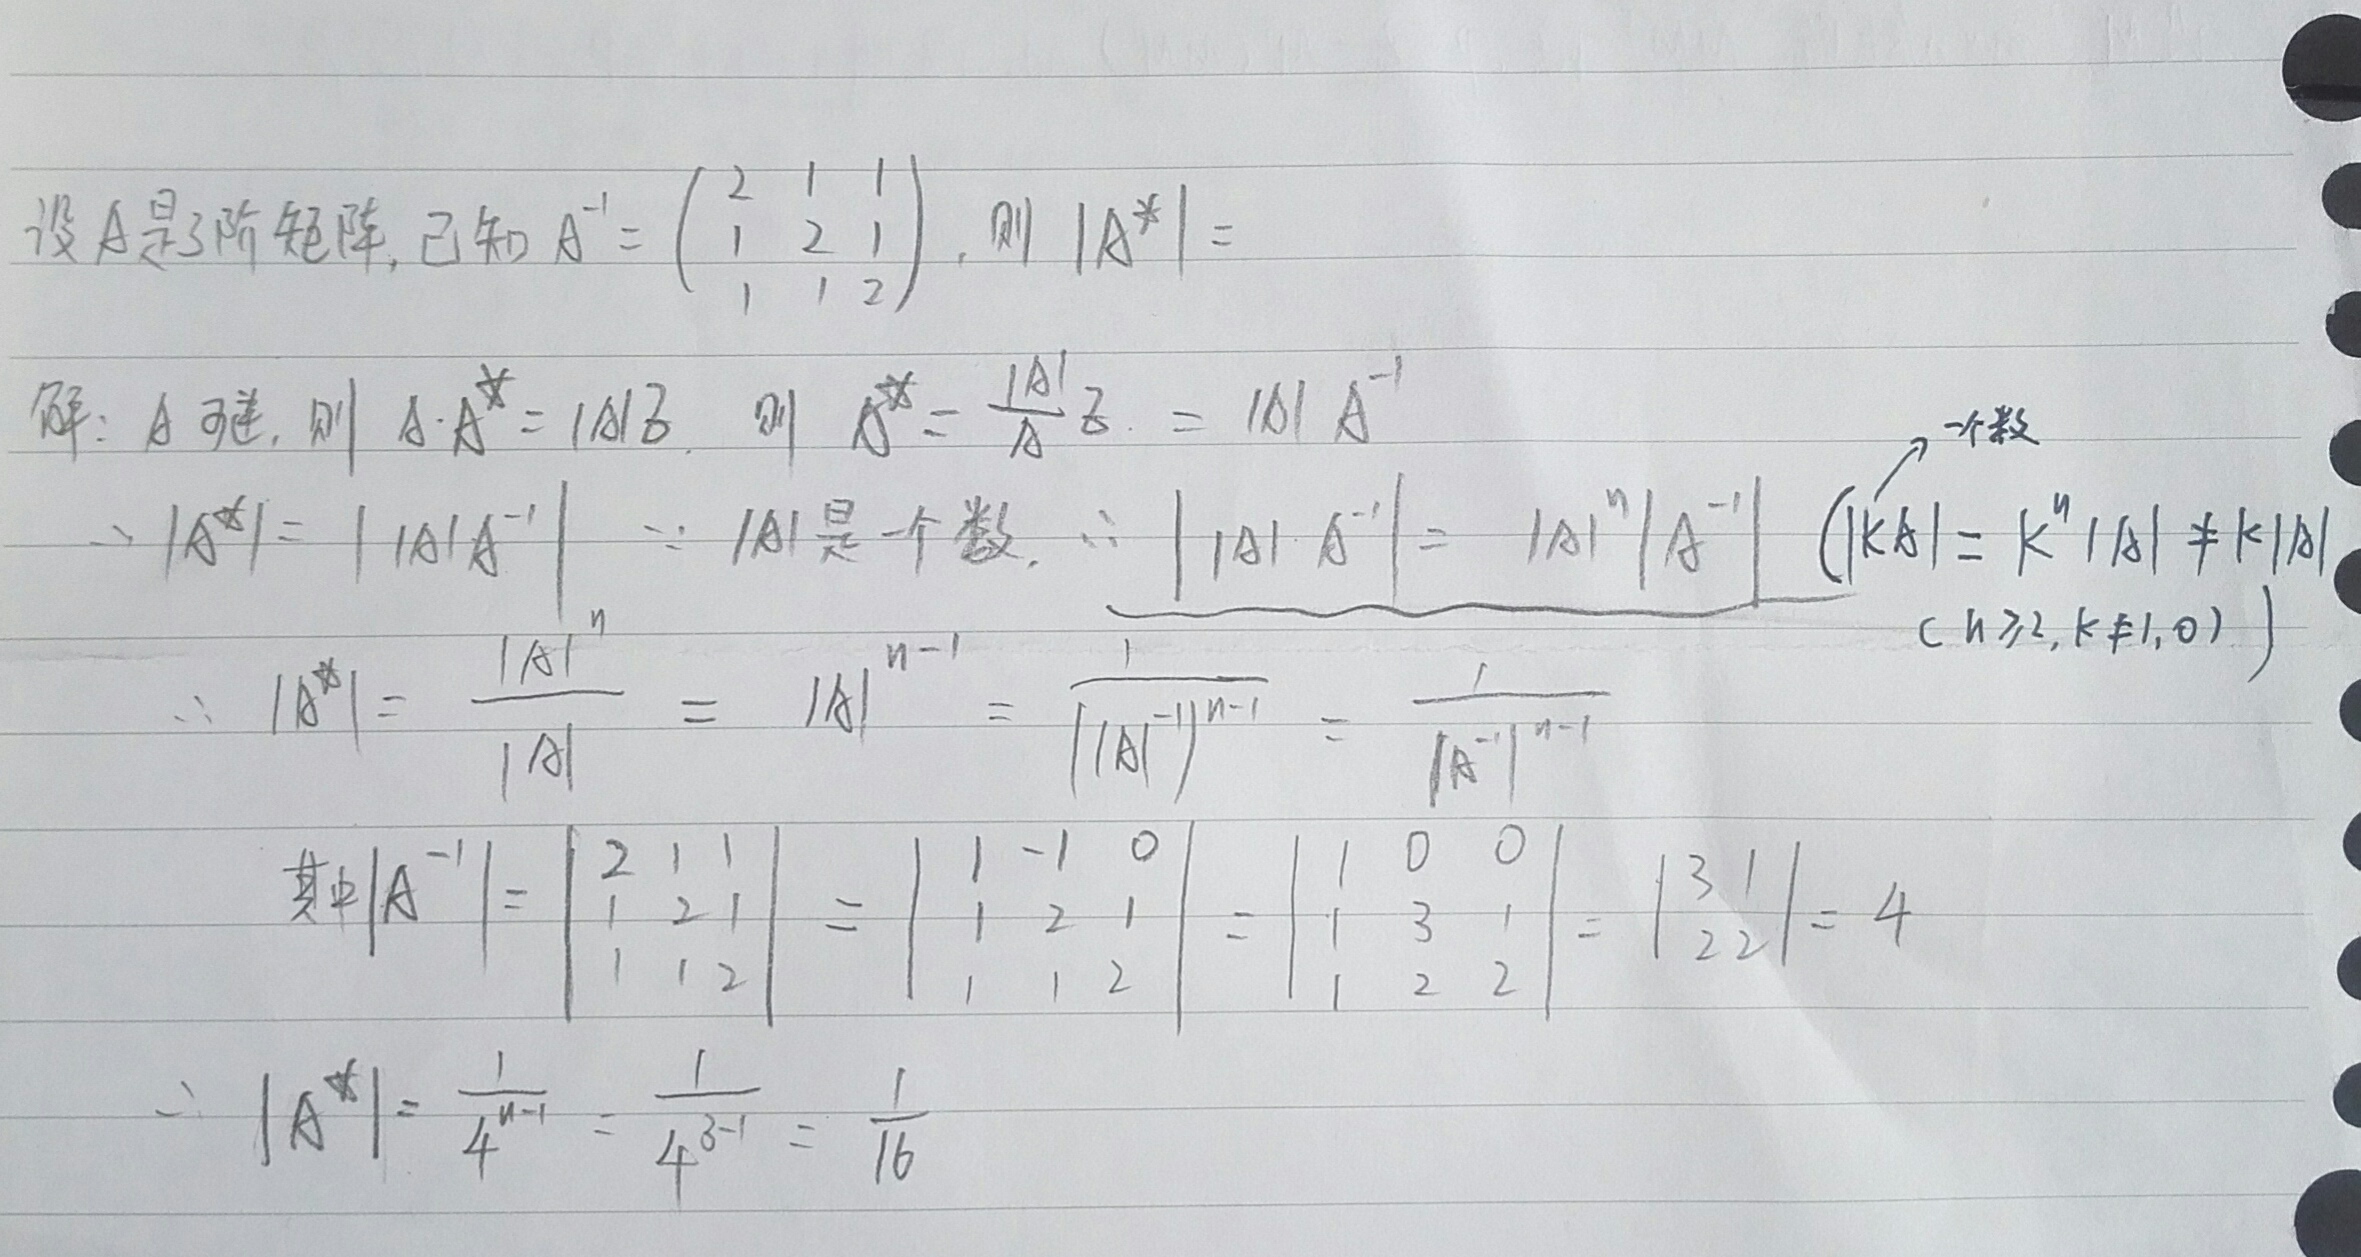 设A是3阶矩阵,已知 A⁻¹ = (2 1 1; 1 2 1; 1 1 2), 则 |A*| =
解: A可逆, 则 A·A* = |A|E. 则 A* = |A|/A E. = |A| A⁻¹
一个数
∴ |A*| = | |A| A⁻¹ | ∵ |A| 是一个数. ∴ | |A|·A⁻¹ | = |A|ⁿ |A⁻¹| (|KA| = Kⁿ|A| ≠ K|A|
(n≥2, K≠1,0))
∴ |A*| = |A|ⁿ/|A| = |A|ⁿ⁻¹ = 1/(|A|⁻¹)ⁿ⁻¹ = 1/|A⁻¹|ⁿ⁻¹
其中|A⁻¹| = |2 1 1; 1 2 1; 1 1 2| = |1 -1 0; 1 2 1; 1 1 2| = |1 0 0; 1 3 1; 1 2 2| = |3 1; 2 2| = 4
∴ |A*| = 1/4ⁿ⁻¹ = 1/4³⁻¹ = 1/16